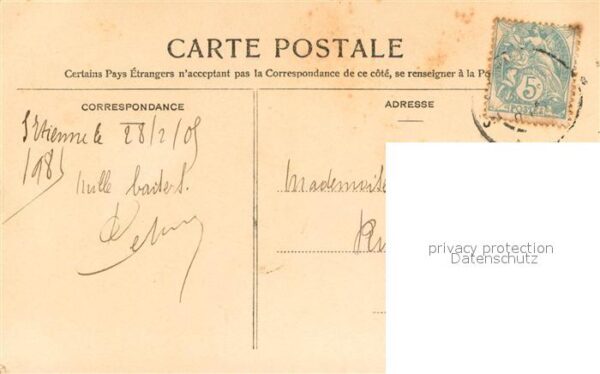 CARTE POSTALE
Certains Pays Étrangers n'acceptant pas la Correspondance de ce côté, se renseigner à la
CORRESPONDANCE
ADRESSE
5c
POSTES
St Etienne le 28/2/05
mille baisers
Mademoise
Ru
privacy protection
Datenschutz